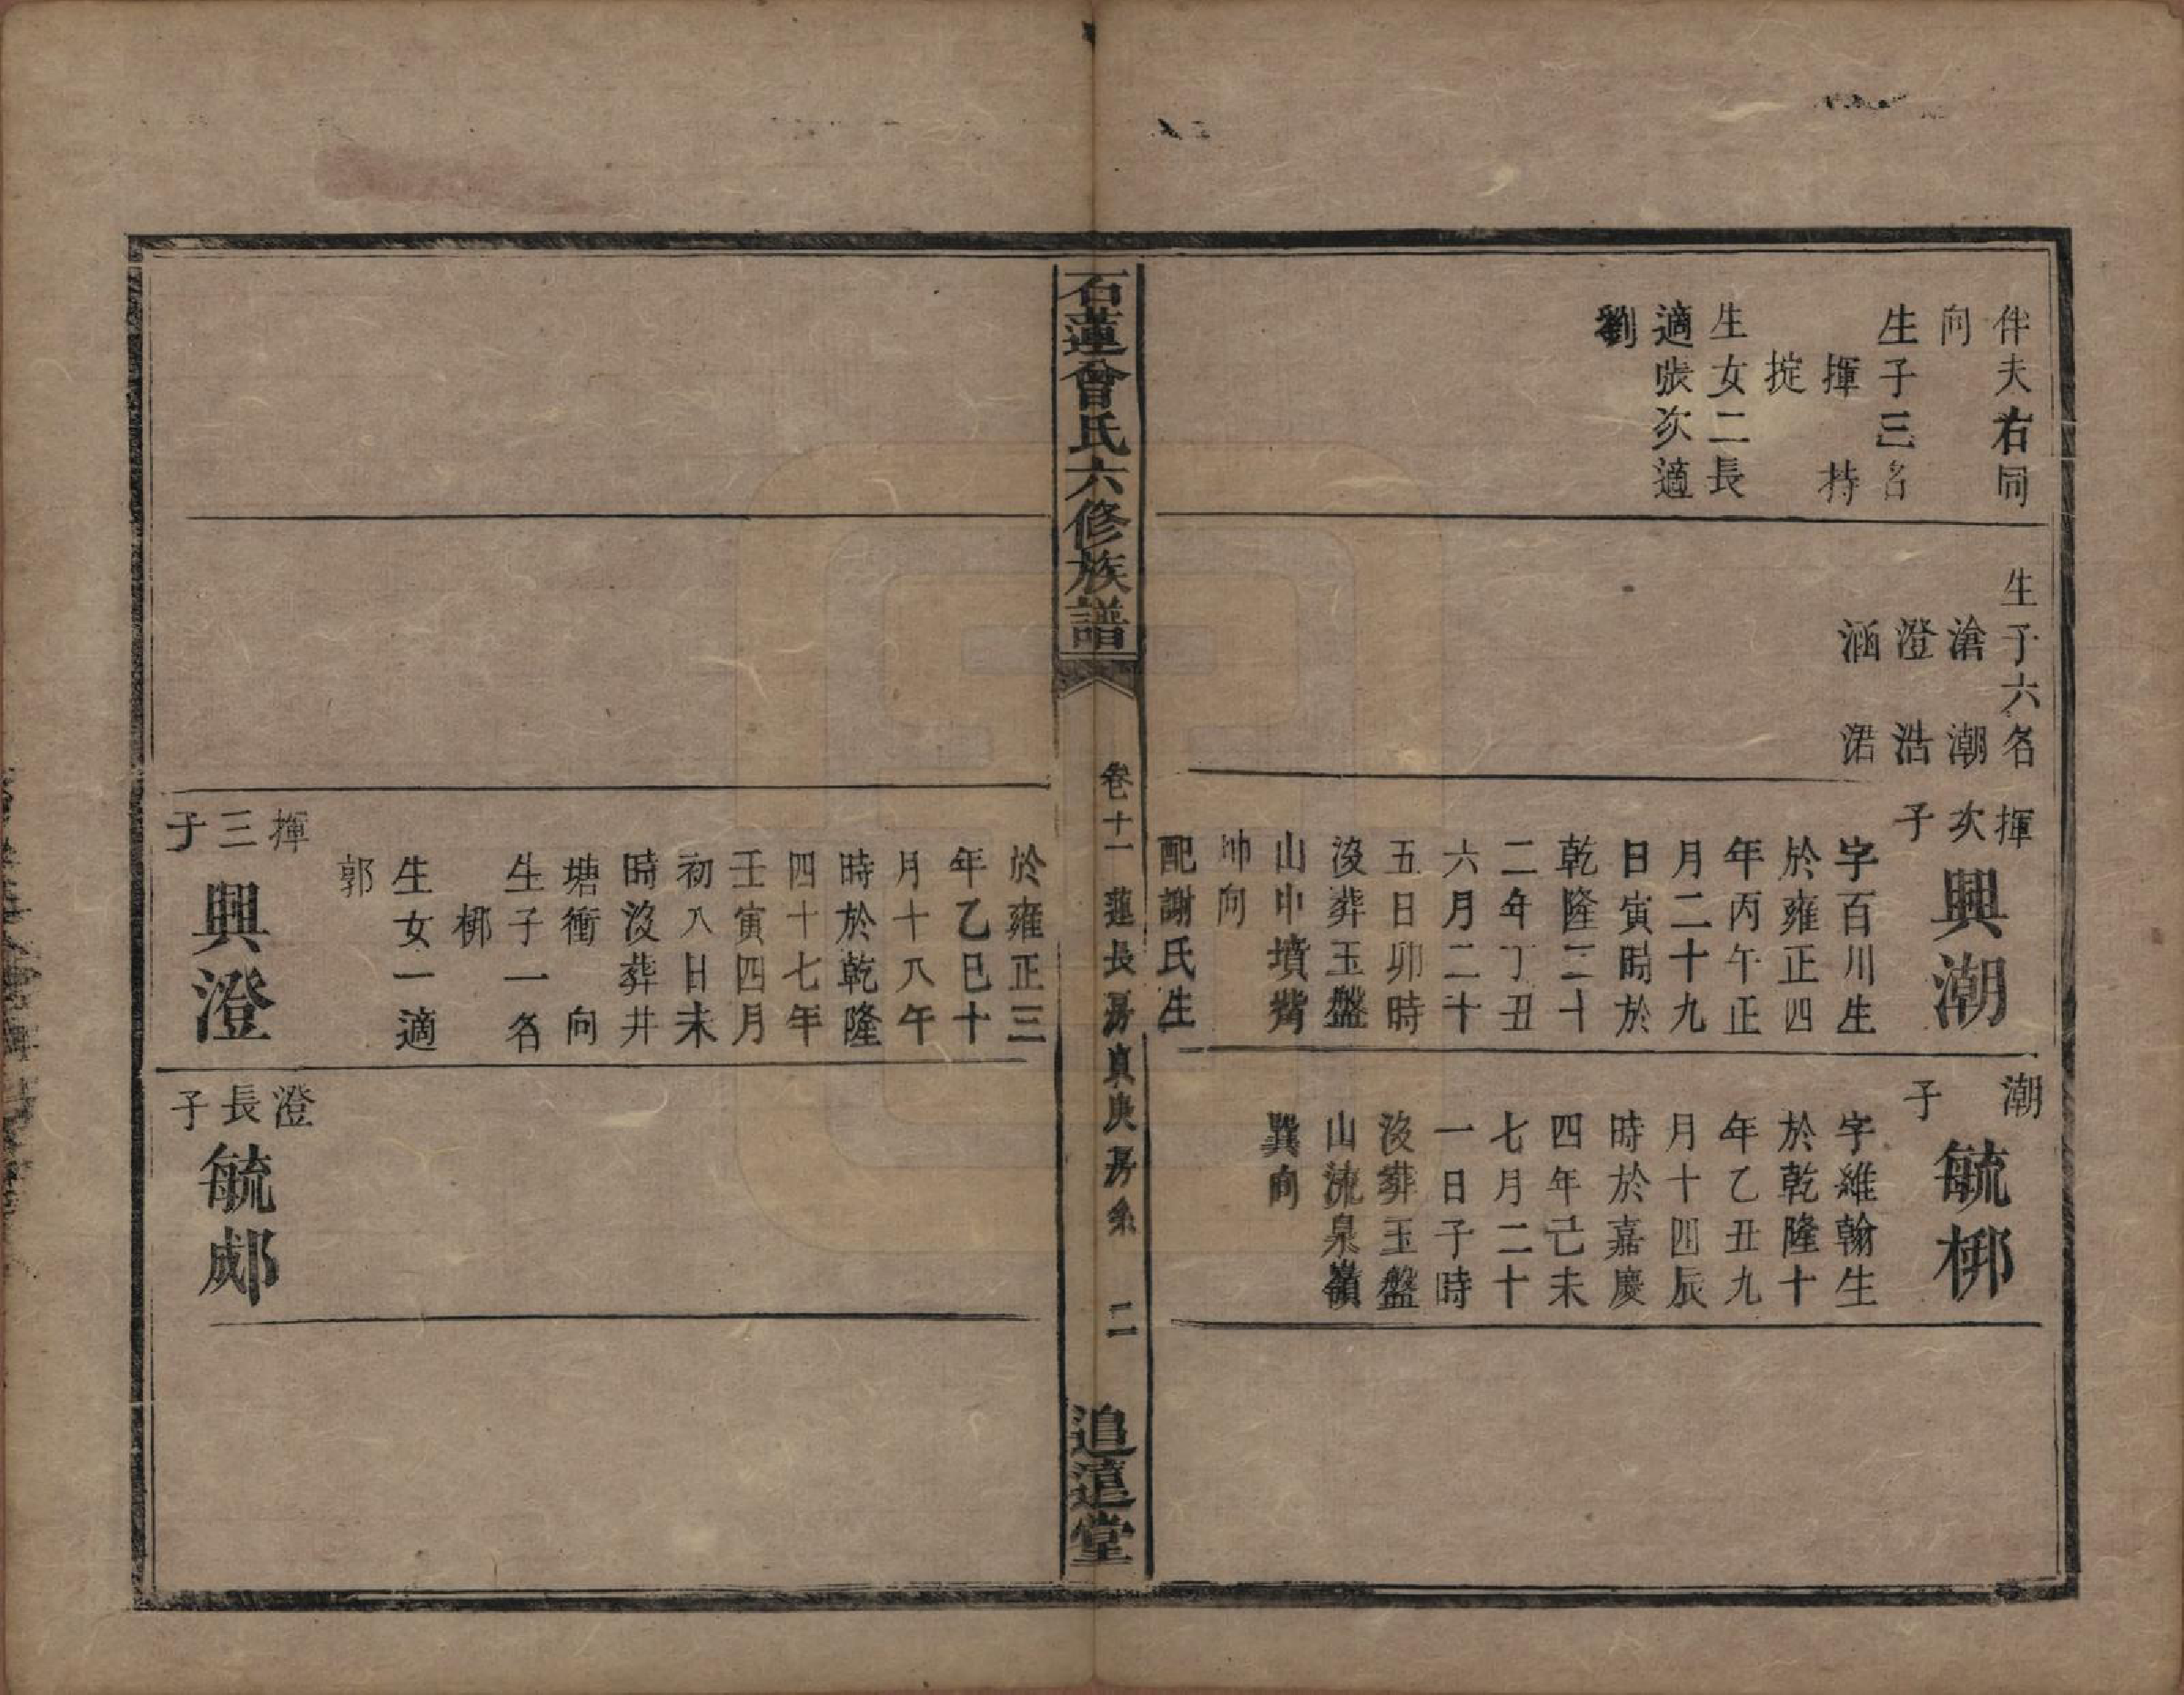 伴夫右同
向
生子三名
揮　持
掟
生女二長
適張次適
劉
生子六名
滄　潮
澄　浩
涵　涒
揮次子
興潮
字百川生
於雍正四
年丙午正
月二十九
日寅時於
乾隆二十
二年丁丑
六月二十
五日卯時
沒葬玉盤
山中墳嘴
坤向
配謝氏生
潮子
毓梆
字維翰生
於乾隆十
年乙丑九
月十四辰
時於嘉慶
四年己未
七月二十
一日子時
沒葬玉盤
山流泉嶺
巽向
石蓮曾氏六修族譜
卷十一　蓮長房真庚房系　二
追遠堂
於雍正三
年乙巳十
月十八午
時於乾隆
四十七年
壬寅四月
初八日未
時沒葬井
塘衝　向
生子一名
梆
生女一適
郭
揮三子
興澄
澄長子
毓郕